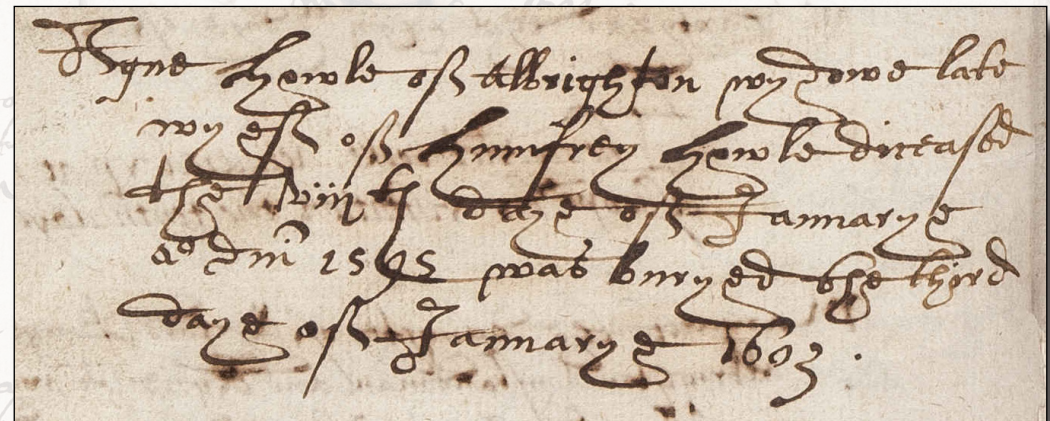 Agne Howle off Albrighton wydowe late
wyeff off Humfrey Howle diceased
the viijth daye off Januarye
ao dni 1595 was buryed the third
daye off Januarye 1603.